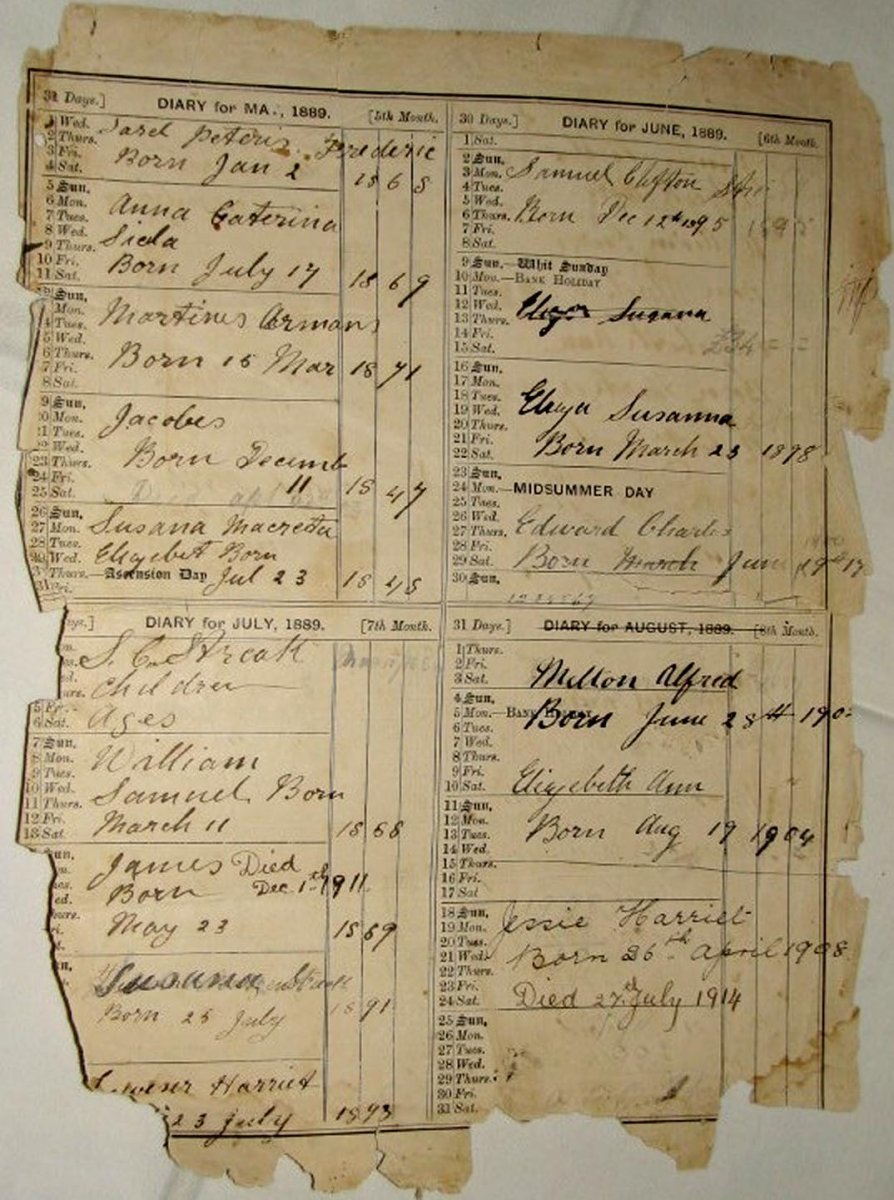 31 Days.] DIARY for MA., 1889. [5th Month.
1 Wed.
2 Thurs. Peteris Frederic
3 Fri. Born Jan 2 1868
4 Sat.
5 Sun.
6 Mon. Anna Caterina
7 Tues.
8 Wed. Siela
9 Thurs.
10 Fri. Born July 17 1869
11 Sat.
Sun.
Mon. Martines Armans
Tues.
Wed.
6 Thurs. Born 15 Mar 1871
7 Fri.
8 Sat.
9 Sun.
20 Mon. Jacobes
21 Tues.
22 Wed. Born Decemb
23 Thurs.
24 Fri. 11 1847
25 Sat.
26 Sun.
27 Mon. Susana Macreta
28 Tues.
Wed. Elizebet Born
Thurs.—Ascension Day Jul 23 1848
Fri.
30 Days.] DIARY for JUNE, 1889. [6th Month.
1 Sat.
2 Sun.
3 Mon. Samuel Clifton
4 Tues.
5 Wed.
6 Thurs. Born Dec 12th 1895 1895
7 Fri.
8 Sat.
9 Sun.—Whit Sunday
10 Mon.—BANK HOLIDAY
11 Tues.
12 Wed. Susana
13 Thurs.
14 Fri.
15 Sat.
16 Sun.
17 Mon.
18 Tues.
19 Wed. Elieza Susanna
20 Thurs.
21 Fri. Born March 23 1898
22 Sat.
23 Sun.
24 Mon.—MIDSUMMER DAY
25 Tues.
26 Wed.
27 Thurs. Edward Charles
28 Fri.
29 Sat. Born March June
30 Sun.
ays.] DIARY for JULY, 1889. [7th Month.
S. C. Streak
Children
5 Fri.
6 Sat. Ages
7 Sun.
8 Mon. William
9 Tues.
10 Wed. Samuel Born
11 Thurs.
12 Fri. March 11 1868
13 Sat.
James Died
Born Dec 1st 1911
May 23 1869
Susanna
Born 25 July 1891
Harriet
23 July 1893
31 Days.] DIARY for AUGUST, 1889. [8th Month.
1 Thurs.
2 Fri.
3 Sat. Milton Alfred
4 Sun.
5 Mon.—BANK Born June 28th 190
6 Tues.
7 Wed.
8 Thurs.
9 Fri.
10 Sat. Elizebeth Ann
11 Sun.
12 Mon.
13 Tues. Born Aug 19 1904
14 Wed.
15 Thurs.
16 Fri.
17 Sat
18 Sun.
19 Mon. Jessie Harriet
20 Tues.
21 Wed. Born 26th April 1908
22 Thurs.
23 Fri.
24 Sat. Died 27th July 1914
25 Sun.
26 Mon.
27 Tues.
28 Wed.
29 Thurs.
30 Fri.
31 Sat.